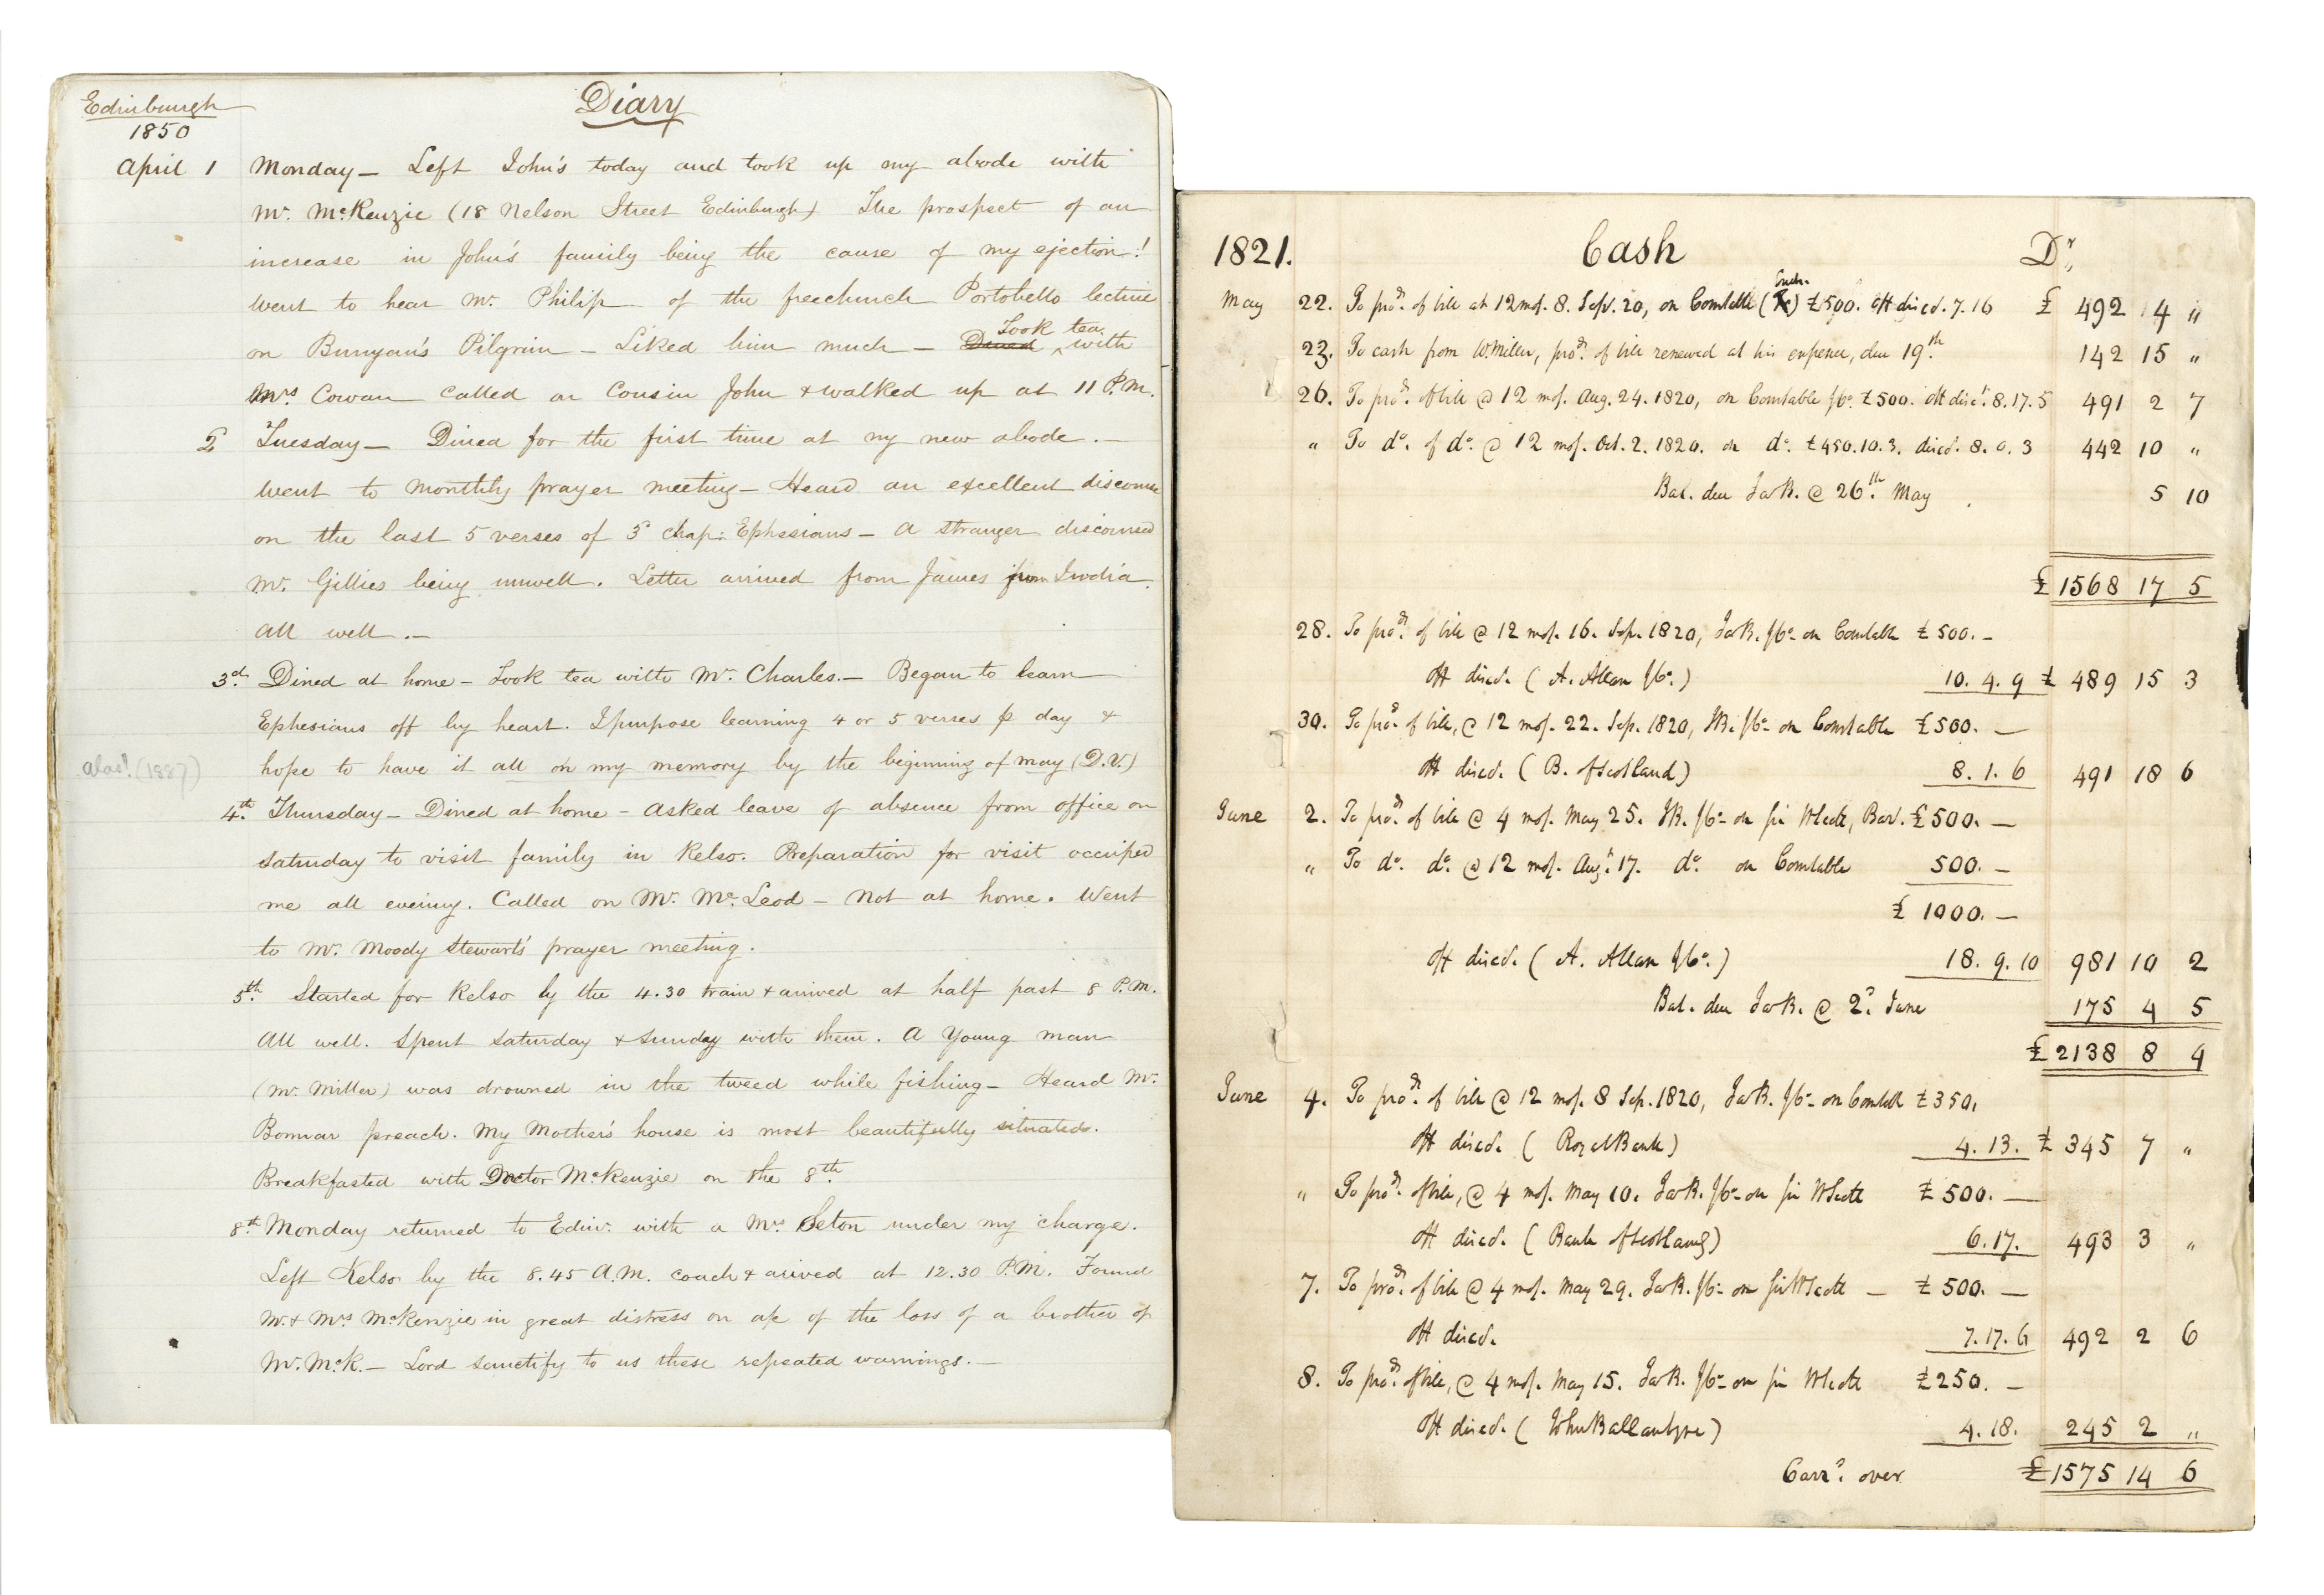 Edinburgh
1850
Diary
April 1 Monday — Left John's today and took up my abode with
Mr. McKenzie (18 Nelson Street Edinburgh) The prospect of an
increase in John's family being the cause of my ejection!
Went to hear Mr. Philip of the freechurch Portobello lecture
on Bunyan's Pilgrim — Liked him much — Dined Took tea with
Mrs Cowan called on Cousin John & walked up at 11 P.M.
2 Tuesday — Dined for the first time at my new abode. —
Went to monthly prayer meeting — Heard an excellent discourse
on the last 5 verses of 5 chap: Ephesians — A stranger discoursed
Mr. Gillies being unwell. Letter arrived from James from India.
All well. —
3d. Dined at home — Took tea with Mr. Charles. — Began to learn
Ephesians off by heart. I purpose learning 4 or 5 verses p day &
alas! (1887) hope to have it all on my memory by the beginning of May (D.V.)
4.th Thursday — Dined at home — Asked leave of absence from office on
Saturday to visit family in Kelso. Preparation for visit occupied
me all evening. Called on Mr. Mc.Leod — Not at home. Went
to Mr. Moody Stewart's prayer meeting.
5.th Started for Kelso by the 4.30 train & arrived at half past 8 P.M.
All well. Spent Saturday & Sunday with them. A Young man
(Mr. Miller) was drowned in the tweed while fishing — Heard Mr.
Bonnar preach. My Mother's house is most beautifully situated.
Breakfasted with Doctor McKenzie on the 8th
8.th Monday returned to Edinr. with a Mrs. Seton under my charge.
Left Kelso by the 8.45 A.M. coach & arived at 12.30 P.M. Found
Mr. & Mrs McKenzie in great distress on a/c of the loss of a brother of
Mr. McK. — Lord sanctify to us these repeated warnings. —
1821. Cash Dr
May 22. To prod. of bill at 12 mos. 8. Sepr. 20, on Constable £500. off discd. 7.16 £ 492 4 "
23. To cash from W Miller, prod. of bill renewed at his expence, due 19.th 142 15 "
26. To prod. of bill @ 12 mos. Aug. 24. 1820, on Constable &Co. £500. off disct. 8.17.5 491 2 7
" To do. of do. @ 12 mos. Oct. 2. 1820. on do. £450.10.3. discd. 8.0.3 442 10 "
Bal. due JaB. @ 26th. May 5 10
£ 1568 17 5
28. To prod. of bill @ 12 mos. 16. Sep. 1820, JaB. &Co. on Constable £500. —
Off discd. (A. Allan &Co.) 10. 4. 9 £ 489 15 3
30. To prod. of bill, @ 12 mos. 22. Sep. 1820, JB. &Co. on Constable £500. —
Off discd. (B. of Scotland) 8. 1. 6 491 18 6
June 2. To prod. of bill @ 4 mos. May 25. JB. &Co. on Sir WScott, Bart. £500. —
" To do. do. @ 12 mos. Augt. 17. do. on Constable 500. —
£ 1000. —
Off discd. (A. Allan &Co.) 18. 9. 10 981 10 2
Bal. due JaB. @ 2d. June 175 4 5
£ 2138 8 4
June 4. To prod. of bill @ 12 mos. 8 Sep. 1820, JaB. &Co. on Constable £350.
Off discd. (Royal Bank) 4. 13. £ 345 7 "
" To prod. of bill, @ 4 mos. May 10. JaB. &Co. on Sir WScott £500. —
Off discd. (Bank of Scotland) 6. 17. 493 3 "
7. To prod. of bill @ 4 mos. May 29. JaB. &Co. on Sir WScott — £500. —
Off discd. 7. 17. 6 492 2 6
8. To prod. of bill, @ 4 mos. May 15. JaB. &Co. on Sir WScott £250. —
Off discd. (John Ballantyne) 4. 18. 245 2 "
Carrd. over £ 1575 14 6